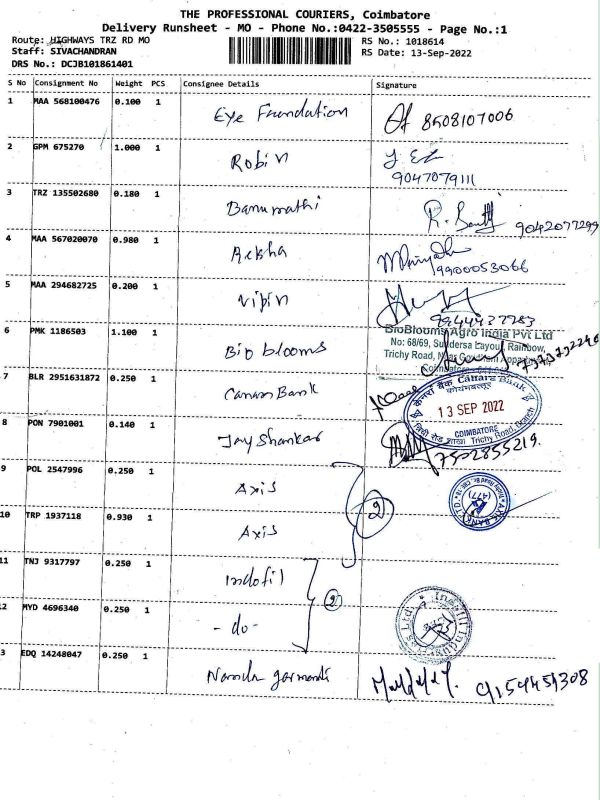 THE PROFESSIONAL COURIERS, Coimbatore
Delivery Runsheet - MO - Phone No.:0422-3505555 - Page No.:1
Route: HIGHWAYS TRZ RD MO
Staff: SIVACHANDRAN
DRS No.: DCJB101861401
RS No.: 1018614
RS Date: 13-Sep-2022
S No Consignment No Weight PCS Consignee Details Signature
1 MAA 568100476 0.100 1 Eye Foundation 8508107006
2 GPM 675270 1.000 1 Robin
9047079111
3 TRZ 135502680 0.180 1 Banumathi 9042077299
4 MAA 567020070 0.980 1 Reksha
9900053066
5 MAA 294682725 0.200 1 Vipin
6 PMK 1186503 1.100 1 Bio blooms
BioBlooms Agro India Pvt Ltd
No: 68/69, Layout, Rainbow,
Trichy Road,
7 BLR 2951631872 0.250 1 Canara Bank
केनरा बैंक Canara Bank
कोयम्बत्तूर
13 SEP 2022
COIMBATORE
Trichy Road, Branch
8 PON 7901001 0.140 1 Jay Shankar 7502855219.
9 POL 2547996 0.250 1 Axis
2
10 TRP 1937118 0.930 1 Axis
11 TNJ 9317797 0.250 1 Indofil
2
2 MYD 4696340 0.250 1 - do -
3 EDQ 14248047 0.250 1 9154451308